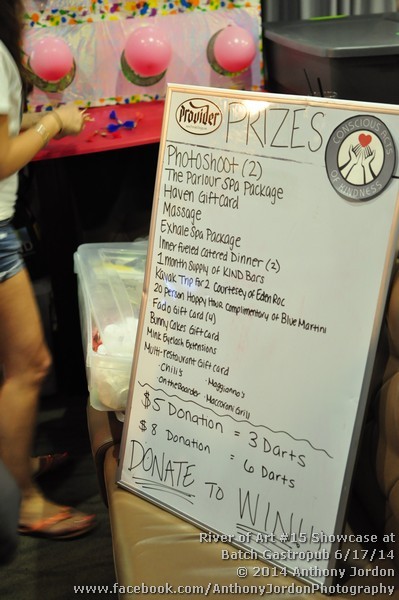 Provider
PRIZES
CONSCIOUS ACTS
OF KINDNESS
Photoshoot (2)
The Parlour Spa Package
Haven Gift Card
Massage
Exhale Spa Package
Inner fueled Catered Dinner (2)
1 month Supply of KIND Bars
Kayak Trip For 2 Courtesey of Eden Roc
20 person Happy Hour Complimentary of Blue Martini
Fado Gift Card (4)
Bunny Cakes Gift Card
Mink Eyelash Extensions
Multi-restaurant Gift card
· Chili's · Maggianno's
· On the Boarder · Macaroni Grill
$5 Donation = 3 Darts
$8 Donation = 6 Darts
DONATE TO WIN!!
River of Art #15 Showcase at
Batch Gastropub 6/17/14
© 2014 Anthony Jordon
www.facebook.com/AnthonyJordonPhotography